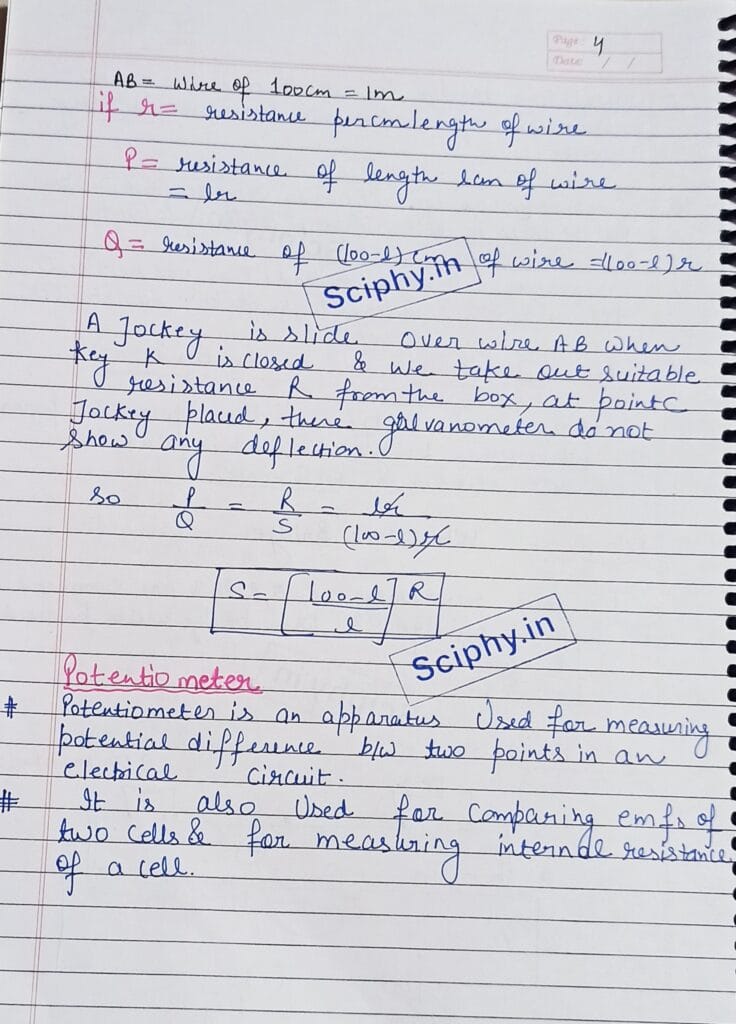 Page 4
Date / /
AB = Wire of 100cm = 1m
if r = resistance percmlength of wire
P = resistance of length lcm of wire
= lr
Q = resistance of (100-l) cm of wire =(100-l)r
Sciphy.in
A Jockey is slide over wire AB when
key K is closed & we take out suitable
resistance R from the box, at point C
Jockey placed, there galvanometer do not
show any deflection.
so P/Q = R/S = lr/(100-l)r
S = [100-l/l] R
Sciphy.in
Potentio meter
# Potentiometer is an apparatus Used for measuring
potential difference b/w two points in an
electrical circuit.
# It is also Used for Comparing emfs of
two cells & for measuring internal resistance
of a cell.